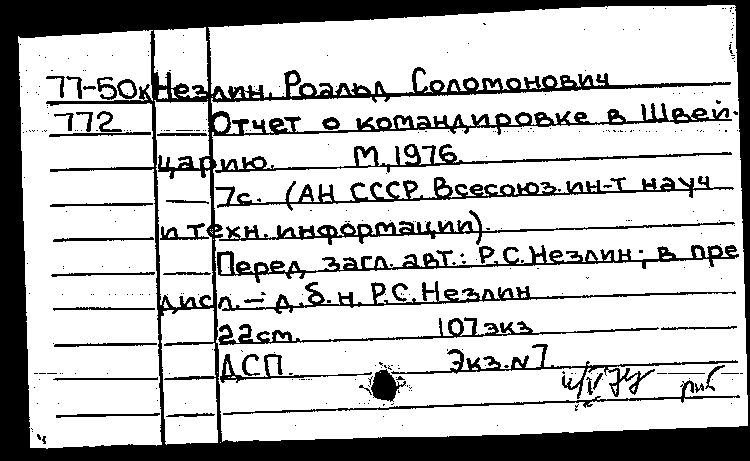 77-50к Незлин, Роальд Соломонович
772 Отчет о командировке в Швей-
царию. М, 1976.
7с. (АН СССР. Всесоюз. ин-т науч
и техн. информации).
Перед загл. авт.: Р.С. Незлин; в пре
дисл. – д.б.н. Р.С. Незлин
22см. 107 экз
ДСП. Экз. N7